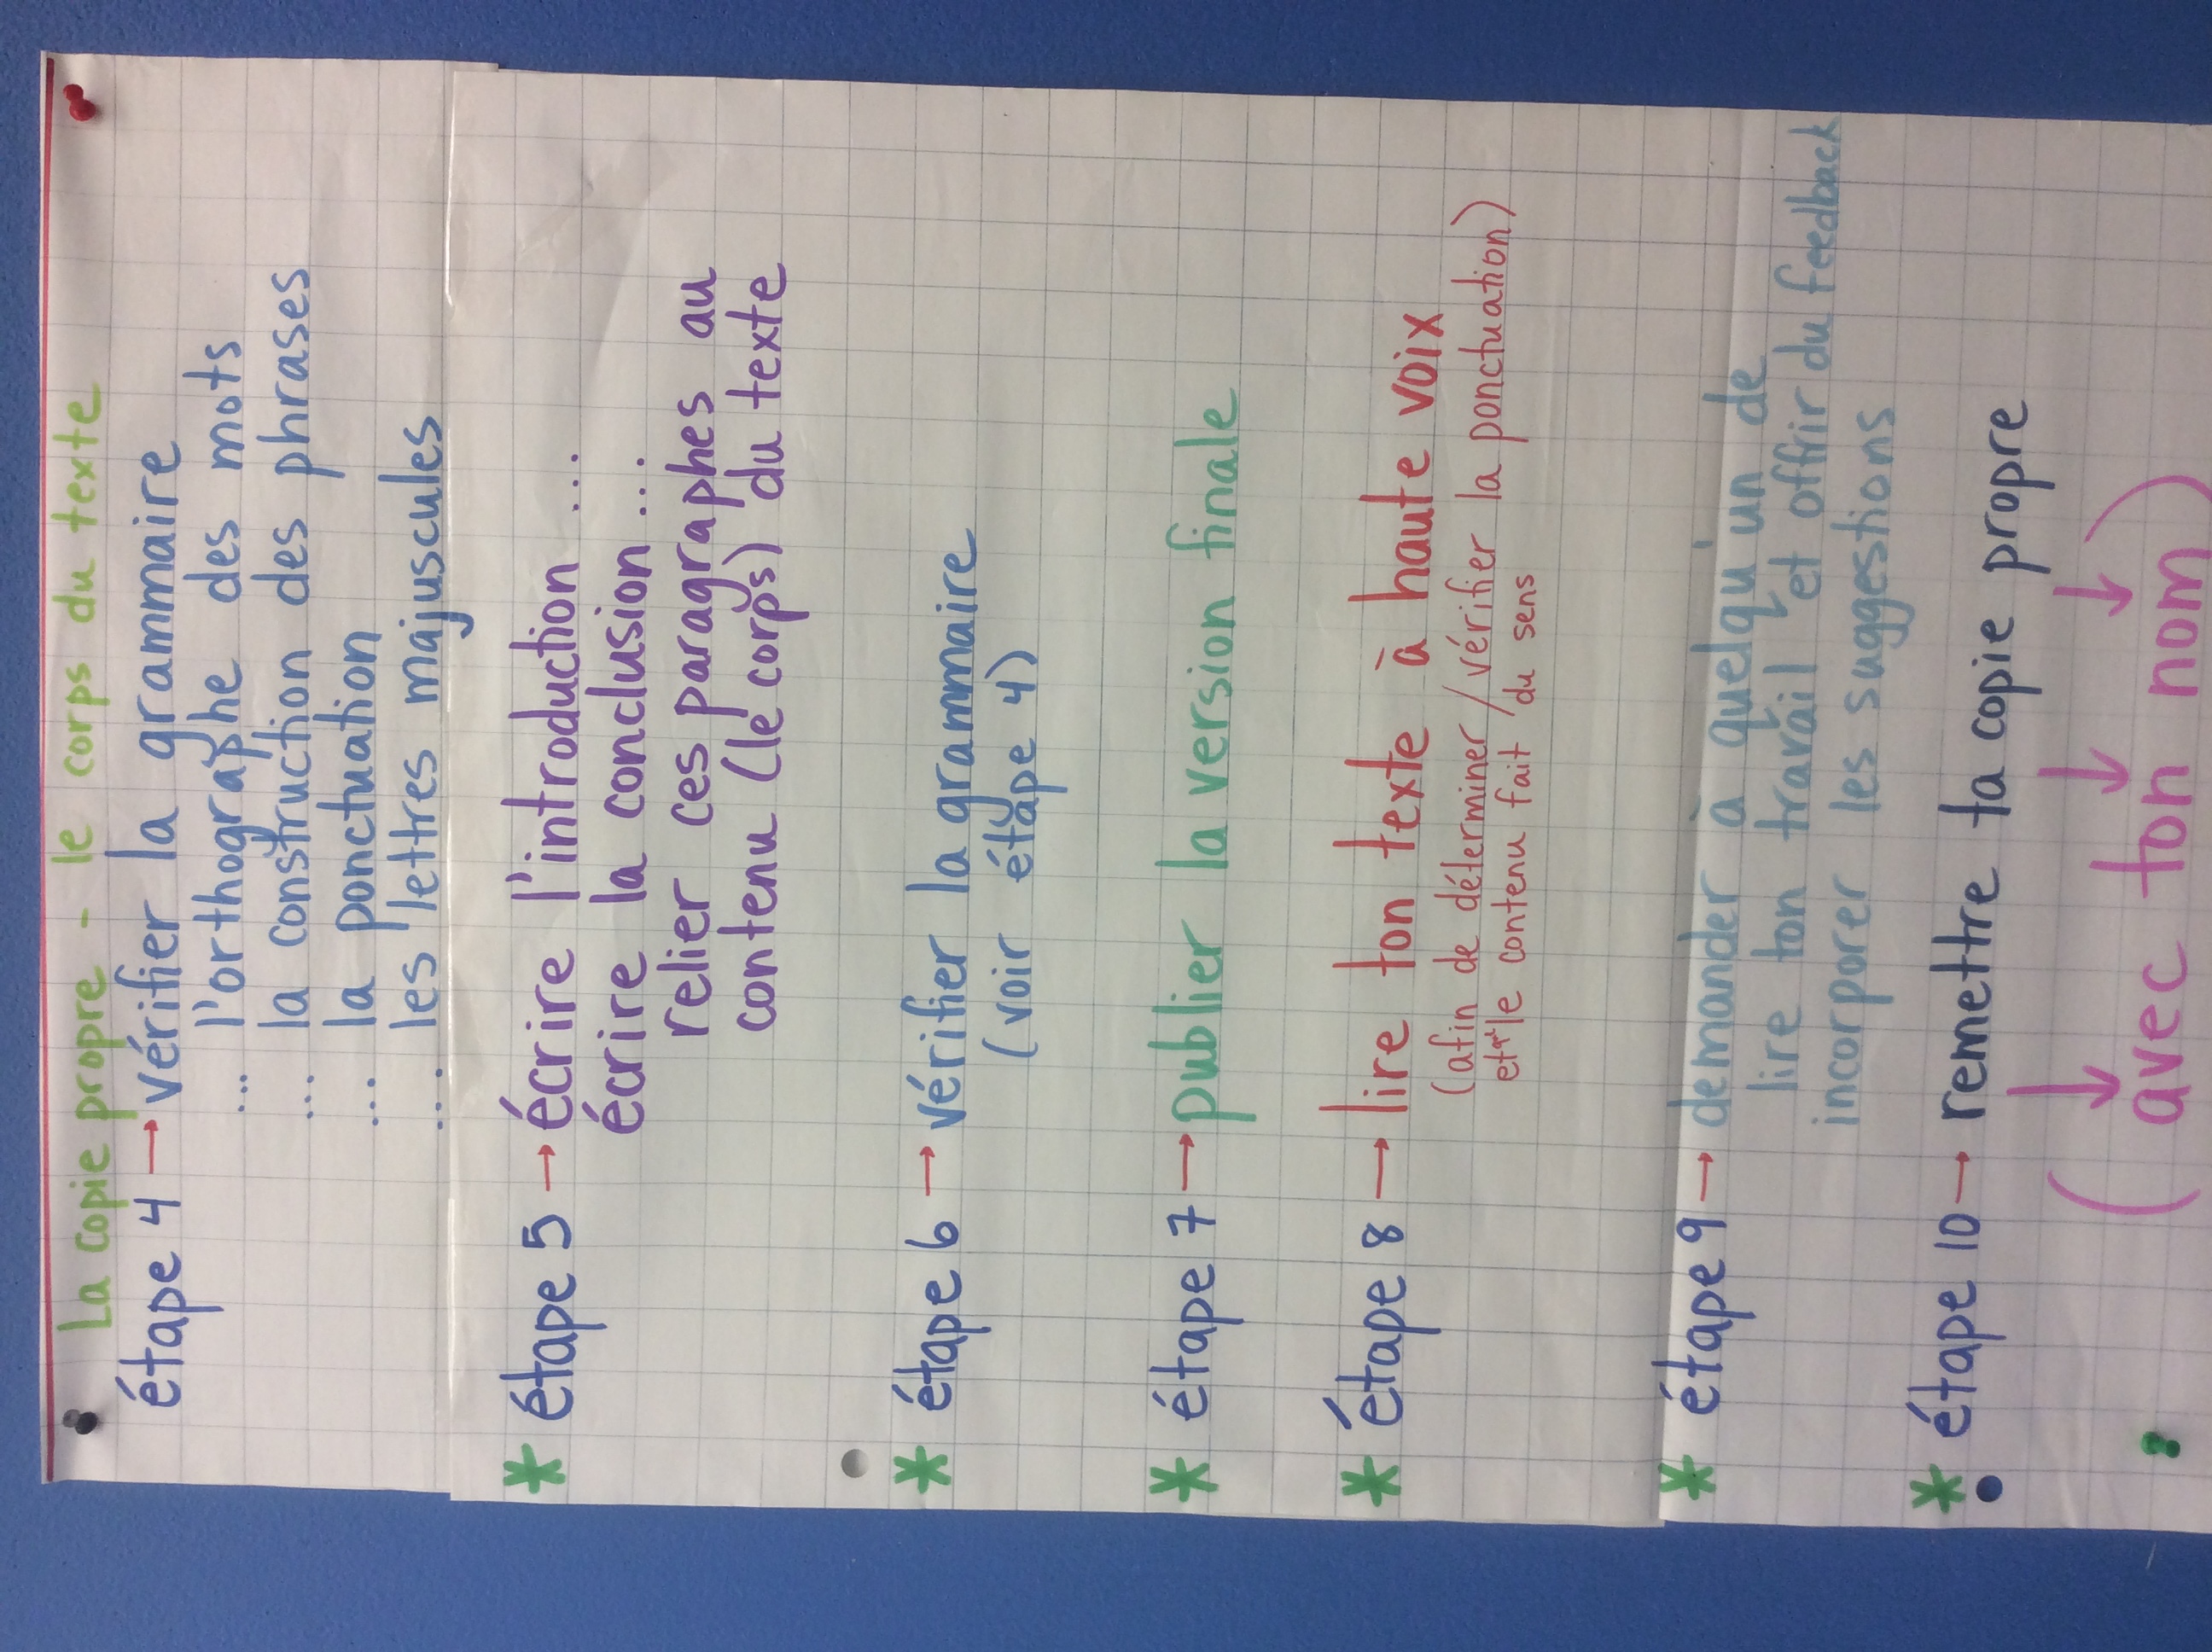 La copie propre - le corps du texte
étape 4 → vérifier la grammaire
... l'orthographe des mots
... la construction des phrases
... la ponctuation
... les lettres majuscules
* étape 5 → écrire l'introduction ...
écrire la conclusion ...
relier ces paragraphes au
contenu (le corps) du texte
* étape 6 → vérifier la grammaire
(voir étape 4)
* étape 7 → publier la version finale
* étape 8 → lire ton texte à haute voix
(afin de déterminer / vérifier la ponctuation)
et que le contenu fait du sens
* étape 9 → demander à quelqu'un de
lire ton travail et offrir du feedback
incorporer les suggestions
* étape 10 → remettre ta copie propre
↓ ↓ ↓
(avec ton nom)